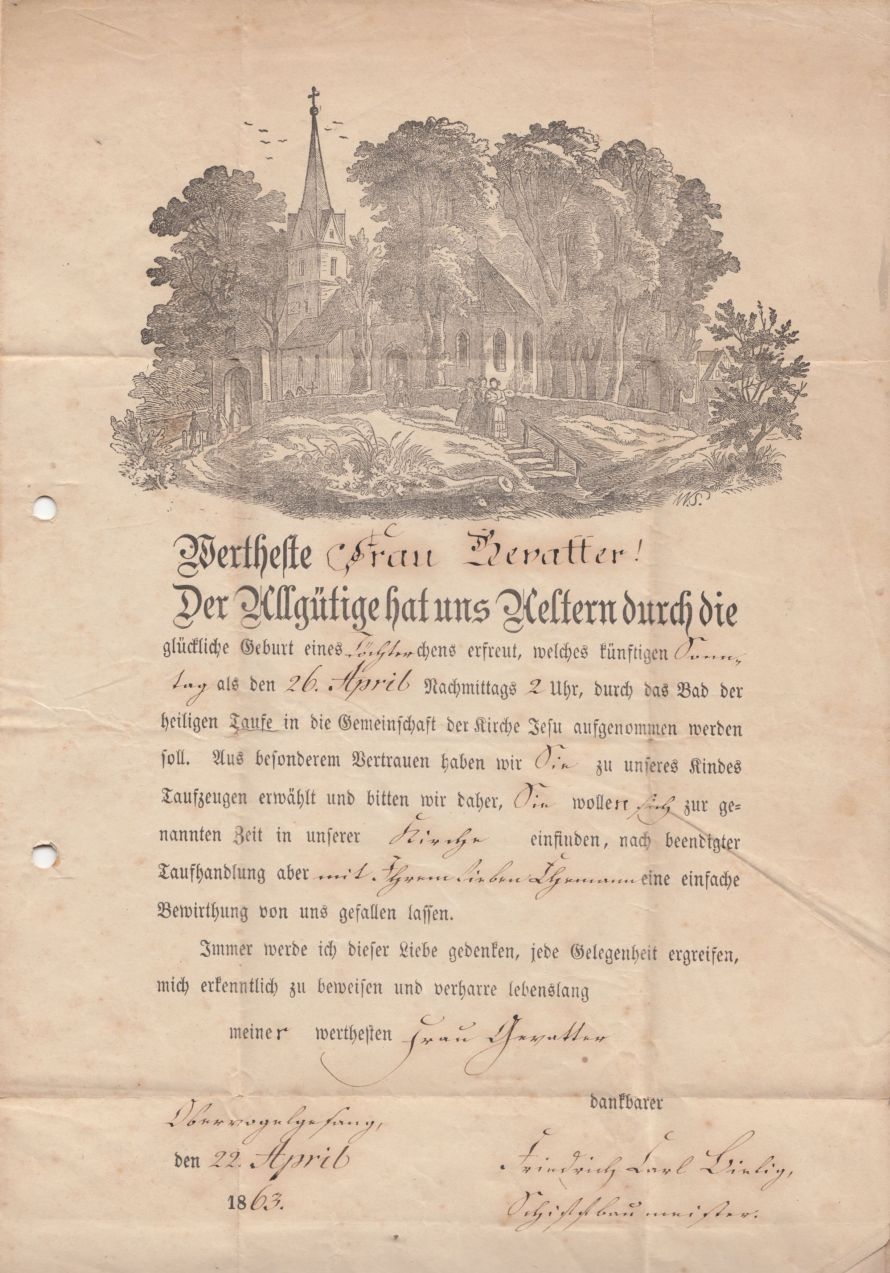 W.S.
Wertheste Frau Gevatter!
Der Allgütige hat uns Aeltern durch die
glückliche Geburt eines Töchterchens erfreut, welches künftigen Sonn-
tag als den 26. April Nachmittags 2 Uhr, durch das Bad der
heiligen Taufe in die Gemeinschaft der Kirche Jesu aufgenommen werden
soll. Aus besonderem Vertrauen haben wir Sie zu unseres Kindes
Taufzeugen erwählt und bitten wir daher, Sie wollen sich zur ge-
nannten Zeit in unserer Kirche einfinden, nach beendigter
Taufhandlung aber mit Ihrem lieben Ehemann eine einfache
Bewirthung von uns gefallen lassen.
Immer werde ich dieser Liebe gedenken, jede Gelegenheit ergreifen,
mich erkenntlich zu beweisen und verharre lebenslang
meiner werthesten Frau Gevatter
dankbarer
Obervogelgesang,
den 22. April
1863.
Friedrich Carl Bielig,
Schiffbaumeister.